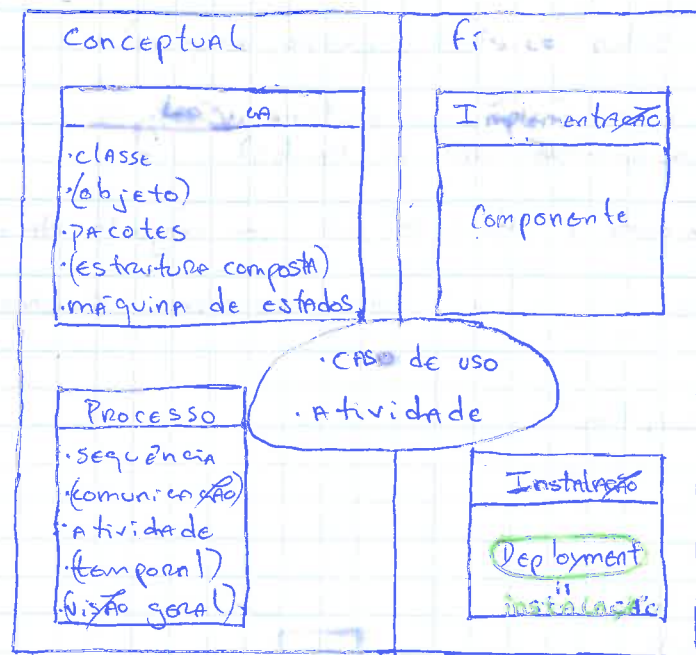 Conceptual
·classe
·(objeto)
·pacotes
·(estrutura composta)
·máquina de estados
Implementação
Componente
·caso de uso
·Atividade
Processo
·sequência
·(comunicação)
·Atividade
·(temporal)
·(visão geral)
Instalação
Deployment
"
instalação